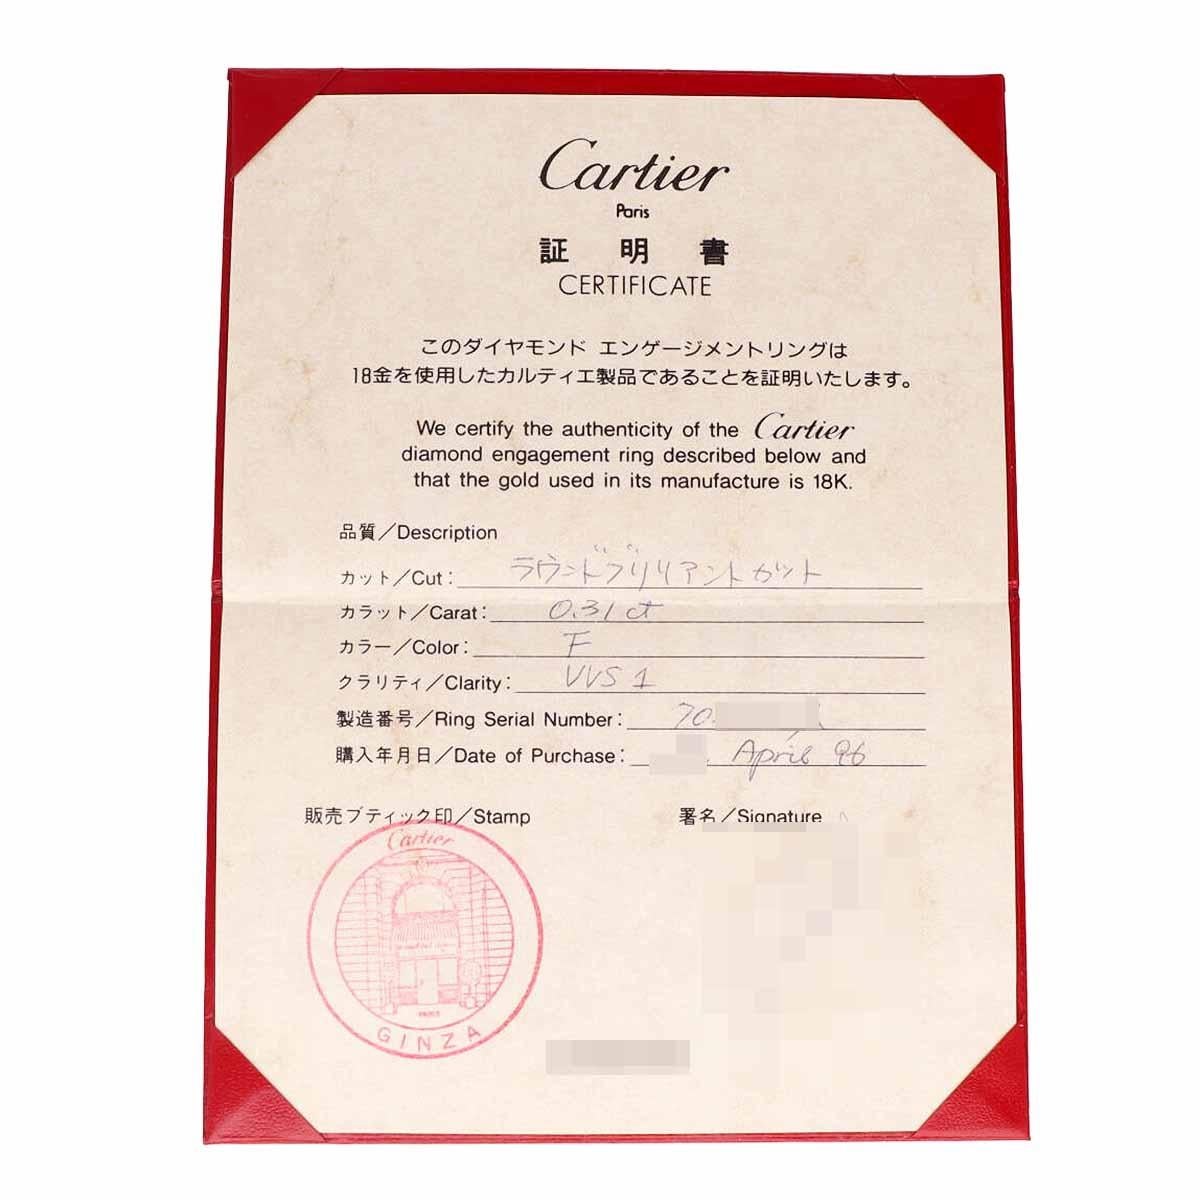 Cartier
Paris
証明書
CERTIFICATE
このダイヤモンド エンゲージメントリングは
18金を使用したカルティエ製品であることを証明いたします。
We certify the authenticity of the Cartier
diamond engagement ring described below and
that the gold used in its manufacture is 18K.
品質/Description
カット/Cut: ラウンドブリリアントカット
カラット/Carat: 0.31 ct
カラー/Color: F
クラリティ/Clarity: VVS 1
製造番号/Ring Serial Number: 70
購入年月日/Date of Purchase: April 96
販売ブティック印/Stamp 署名/Signature
Cartier
PARIS
GINZA